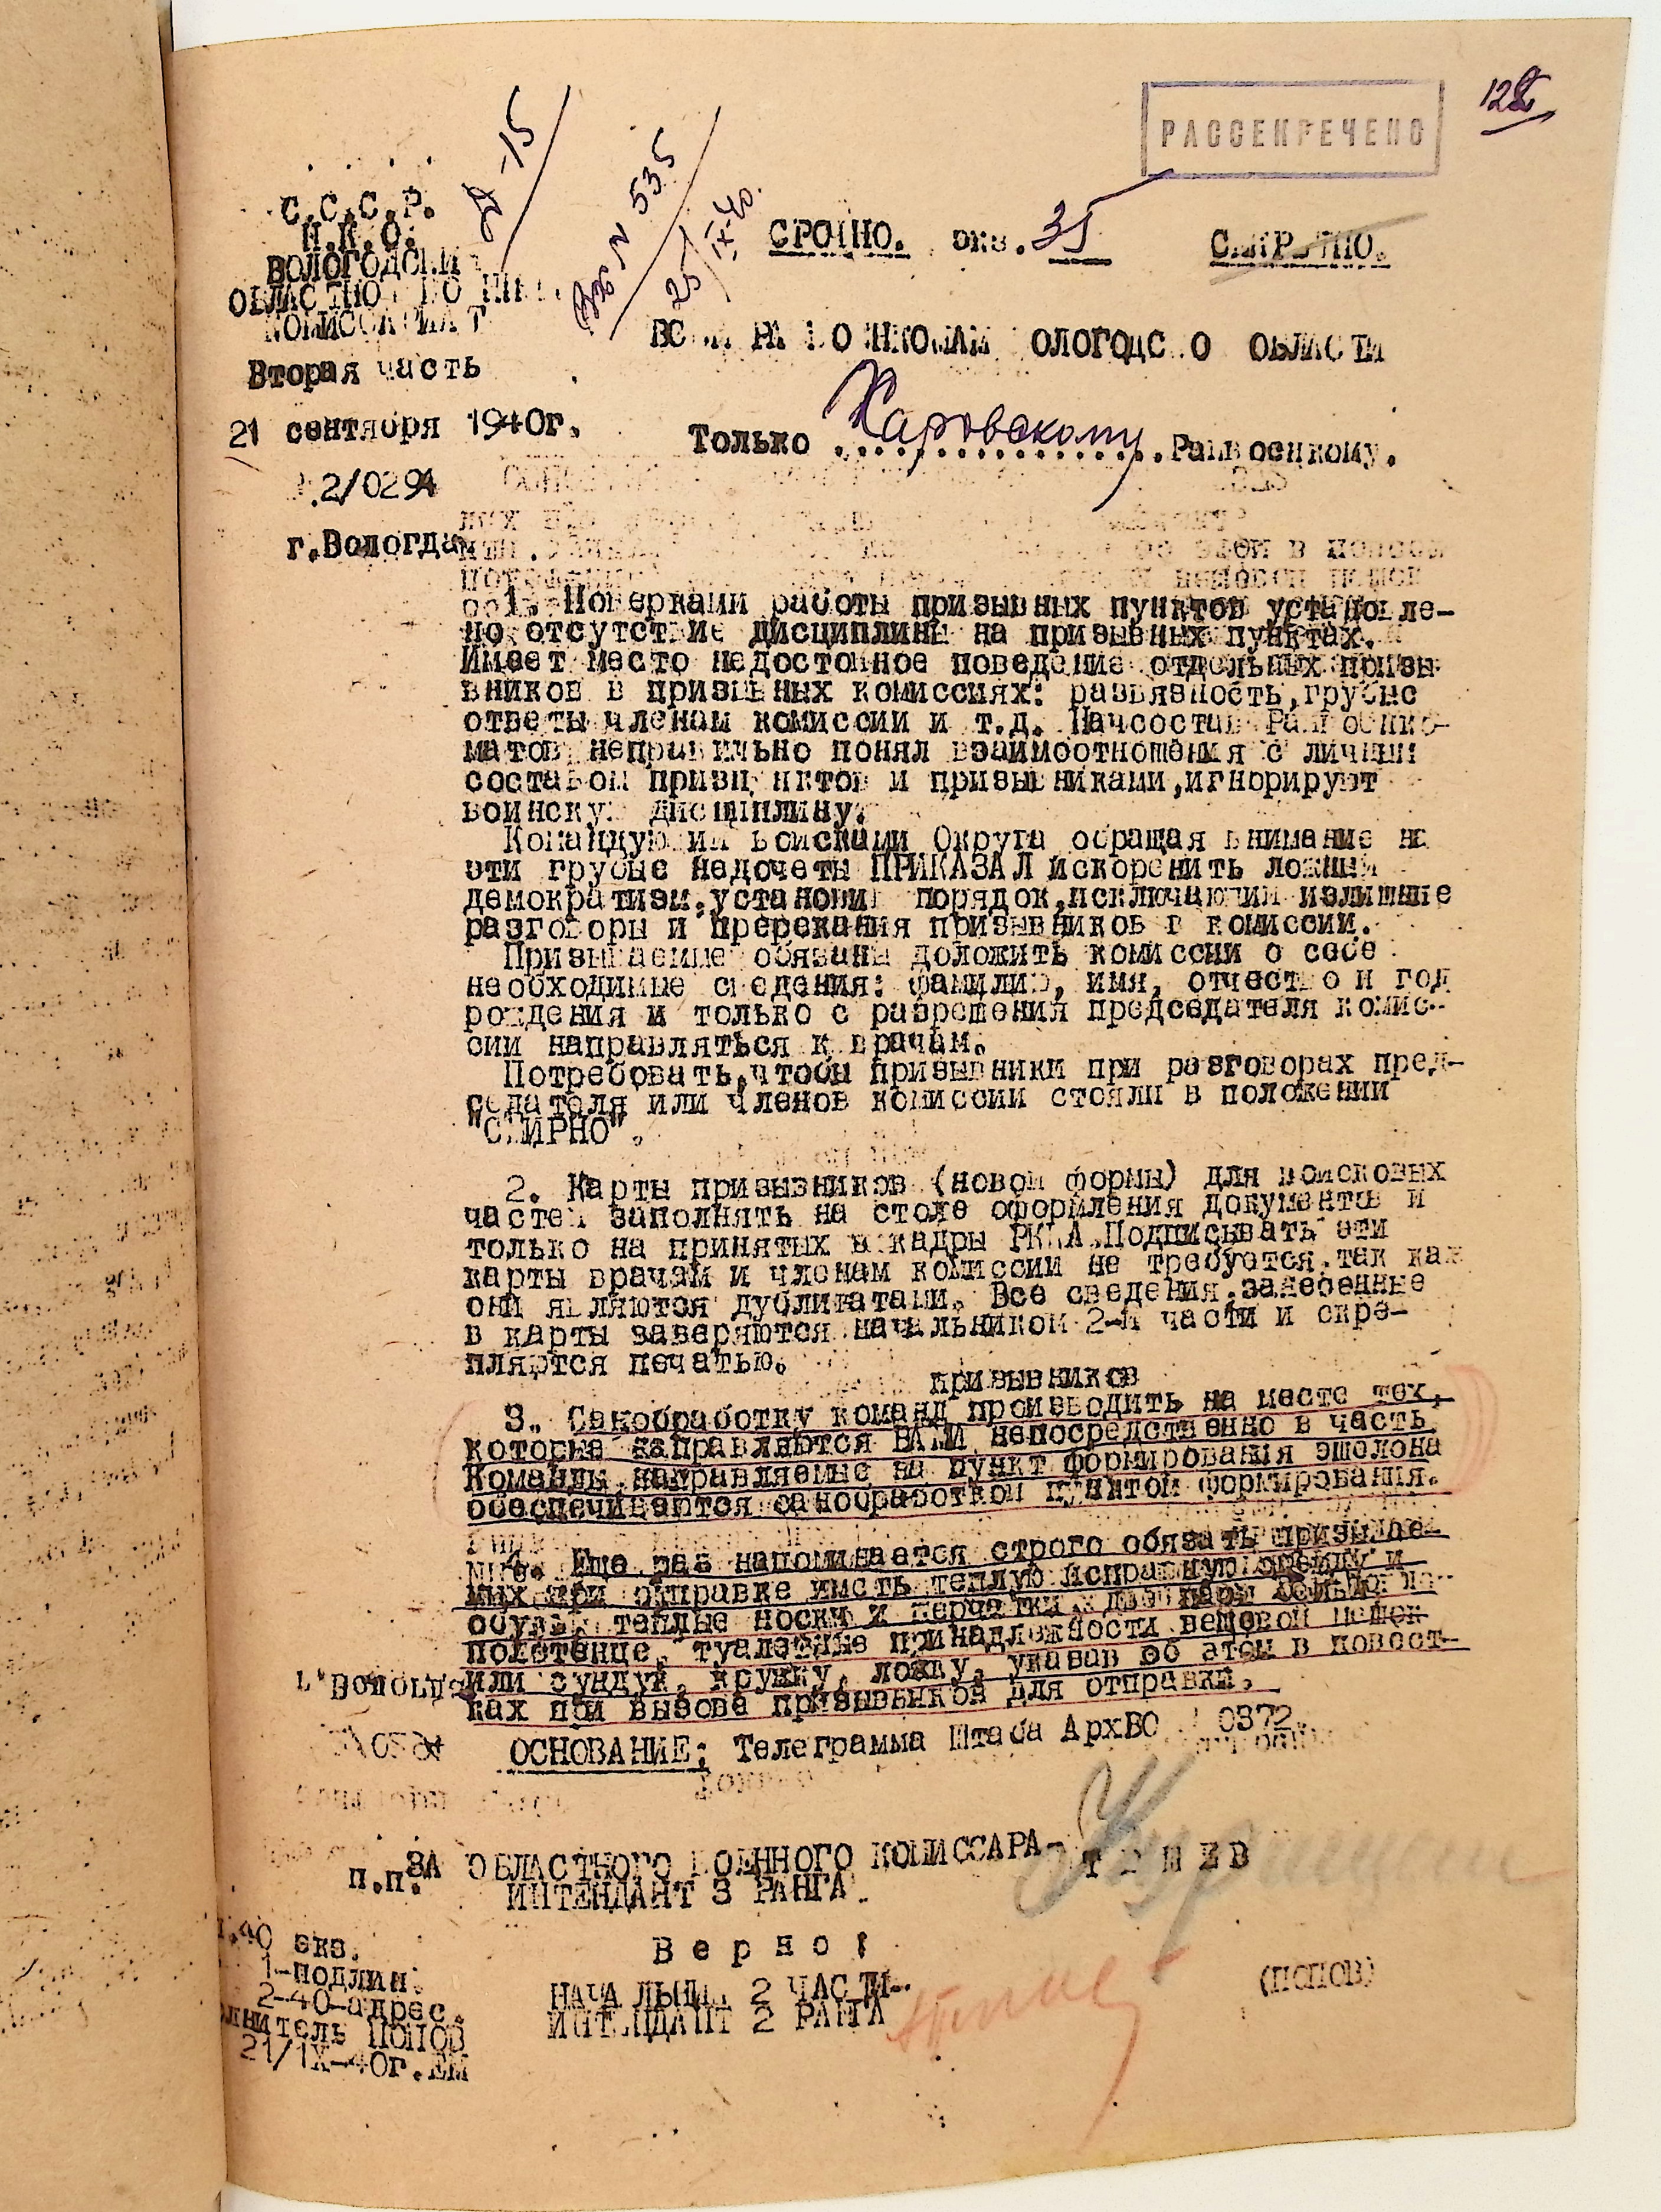 РАССЕКРЕЧЕНО
С.С.С.Р.
Н.К.О.
ВОЛОГОДСКИЙ
ОБЛАСТНОЙ
КОМИССАРИАТ
Вторая часть
21 сентября 1940г.
2/0294
г.Вологда
-15
Вх N 535
25/IX-40.
СРОЧНО. экз. 35 СЕКРЕТНО.
ВСЕМ РАЙВОЕНКОМАМ ВОЛОГОДСКОЙ ОБЛАСТИ
Только Харовскому Райвоенкому.
1. Поверками работы призывных пунктов установле-
но отсутствие дисциплины на призывных пунктах.
Имеет место недостойное поведение отдельных призы-
вников в призывных комиссиях: развязность,грубые
ответы членам комиссии и т.д. Начсостав Райвоенко-
матов неправильно понял взаимоотношения с личным
составом призпунктов и призывниками,игнорируют
воинскую дисциплину.
Командующий войсками Округа обращая внимание на
эти грубые недочеты ПРИКАЗАЛ искоренить ложный
демократизм,установив порядок,исключающий излишние
разговоры и пререкания призывников в комиссии.
Призываемые обязаны доложить комиссии о себе
необходимые сведения: фамилию, имя, отчество и год
рождения и только с разрешения председателя комис-
сии направляться к врачам.
Потребовать,чтобы призывники при разговорах пред-
седателя или членов комиссии стояли в положении
"СМИРНО".
2. Карты призывников (новой формы) для войсковых
частей заполнять на столе оформления документов и
только на принятых в кадры РККА.Подписывать эти
карты врачам и членам комиссии не требуется,так как
они являются дубликатами. Все сведения,занесенные
в карты заверяются начальником 2-й части и скре-
пляются печатью.
призывников
3. Санобработку команд производить на месте тех,
которые направляются ВАМИ непосредственно в часть
Команды,направляемые на пункт формирования эшолона
обеспечиваются санобработкой пунктом формирования.
4. Еще раз напоминается строго обязать призывае-
мых при отправке иметь теплую исправную одежду и
обувь, теплые носки и перчатки, две пары белья
полотенце, туалетные принадлежности вещевой мешок
или сундук, кружку, ложку, указав об этом в повест-
ках при вызове призывников для отправки.
ОСНОВАНИЕ: Телеграмма Штаба АрхВО 0372.
п.п. ЗА ОБЛАСТНОГО ВОЕННОГО КОМИССАРА-
ИНТЕНДАНТ 3 РАНГА
Верно:
НАЧАЛЬНИК 2 ЧАСТИ-
ИНТЕНДАНТ 2 РАНГА (ПОПОВ)
40 экз.
1-подлин.
2-40-адрес.
олнитель ПОПОВ
21/IX-40г.ЕМ